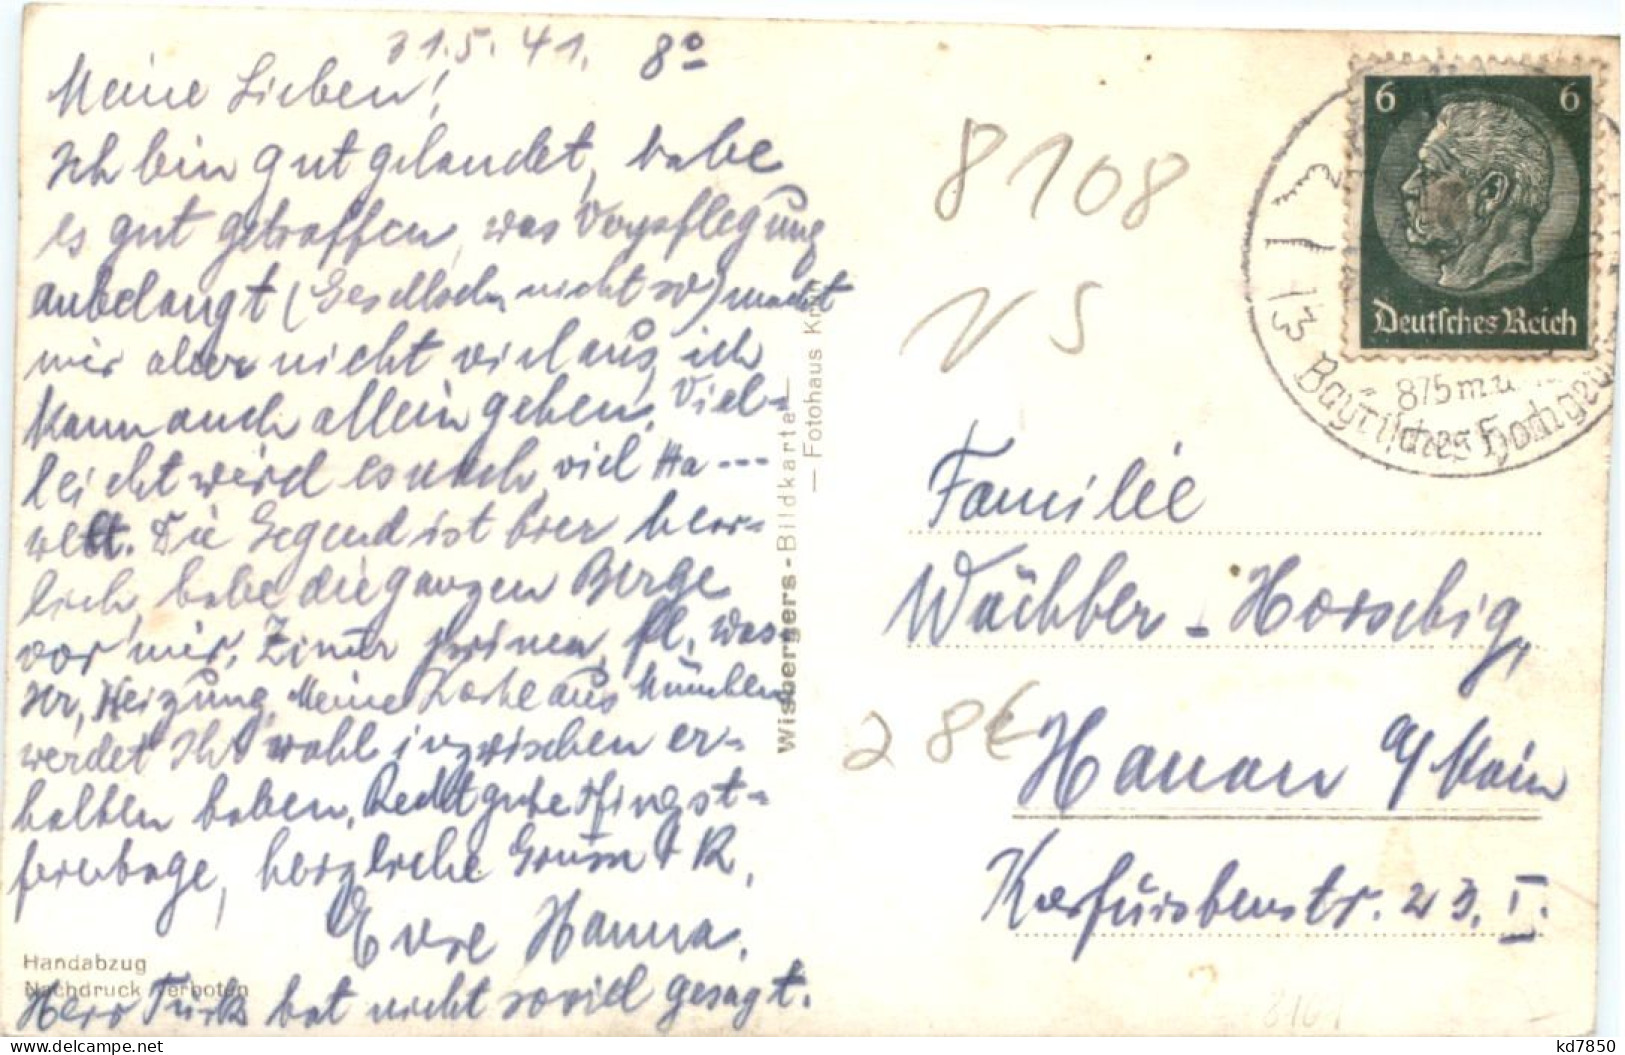 31.5.41. 8°
Meine Lieben!
Ich bin gut gelandet, habe
es gut getroffen, was Verpflegung
anbelangt (Gesellsch. nicht so) macht
mir aber nicht viel aus, ich
kann auch allein gehen. Viel-
leicht wird es noch, viel Ha---
Die Gegend ist hier herr-
lich, habe die ganzen Berge
vor mir. Zimmer prima, fl. Was-
ser, Heizung, Meine Karte aus München
werdet Ihr wohl inzwischen er-
halten haben. Recht gute Pfingst-
feiertage, herzliche Grüsse + K,
Eure Hanna.
Herr Türk hat nicht soviel gesagt.
Handabzug
Nachdruck verboten
Wisbergers-Bildkarte
— Fotohaus
8108
VS
28€
6 6
Deutsches Reich
13
875 m ü.
Bayrisches Hochgeb
Familie
Wächter-Horschig,
Hanau a/Main
Kurfürstenstr. 23. I.
kd7850